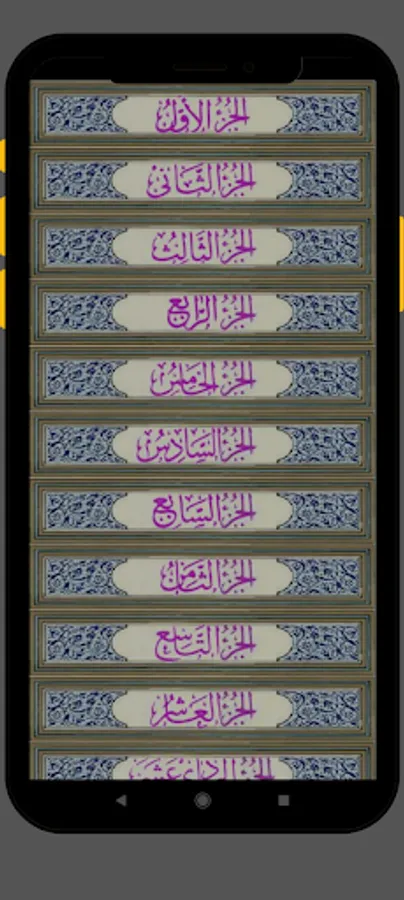 الجزء الأول
الجزء الثاني
الجزء الثالث
الجزء الرابع
الجزء الخامس
الجزء السادس
الجزء السابع
الجزء الثامن
الجزء التاسع
الجزء العاشر
الجزء الحادي عشر